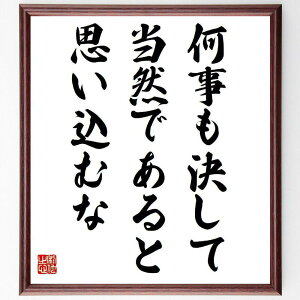 何事も決して
当然であると
思い込むな